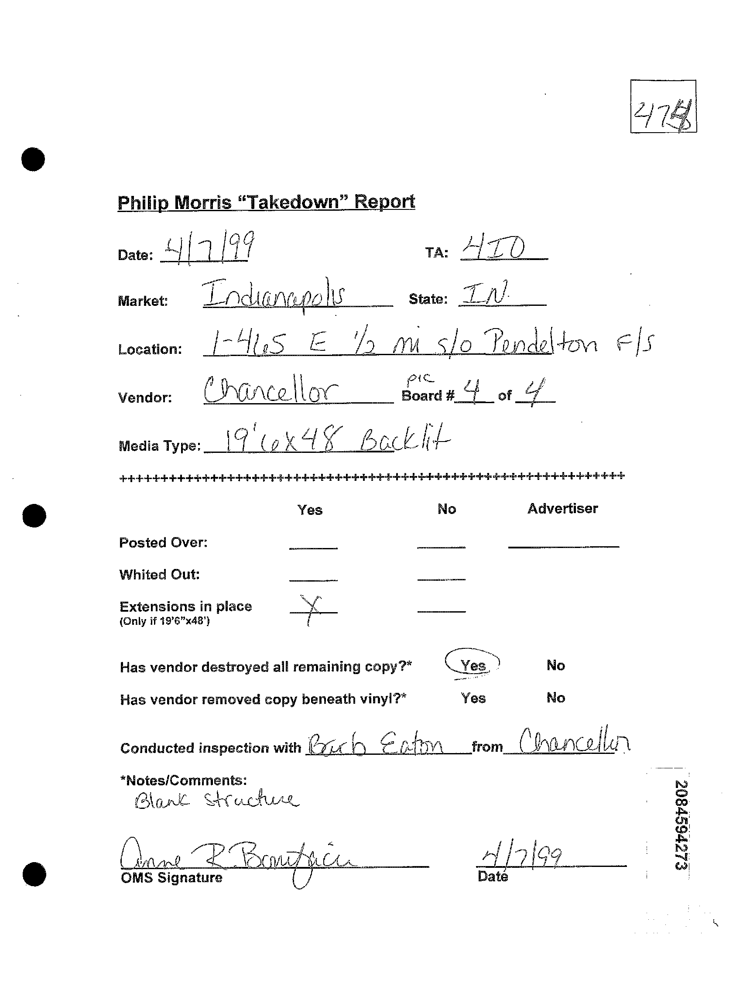 Philip Morris "Takedown" Report
Date: 4/7/99 TA: 4IO
Market: Indianapolis State: IN.
Location: I-465 E 1/2 mi s/o Pendelton F/S
Vendor: Chancellor pic Board # 4 of 4
Media Type: 19'6x48 Backlit
++++++++++++++++++++++++++++++++++++++++++++++++++++++++++++++
Yes No Advertiser
Posted Over:
Whited Out:
Extensions in place X
(Only if 19'6"x48')
Has vendor destroyed all remaining copy?* Yes No
Has vendor removed copy beneath vinyl?* Yes No
Conducted inspection with Barb Eaton from Chancellor
*Notes/Comments:
Blank structure
Anne R. 4/7/99
OMS Signature Date
2084594273